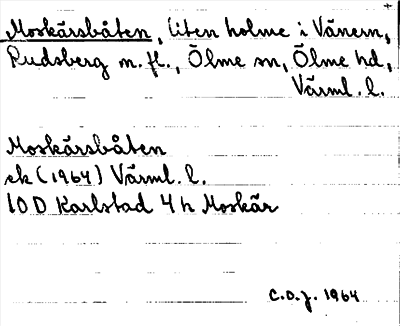 Moskärsbåten, liten holme i Vänern,
Rudsberg m. fl., Ölme sn, Ölme hd,
Värml. l.
Moskärsbåten
ek (1964) Värml. l.
10 D Karlstad 4 h Moskär
C.O.J. 1964